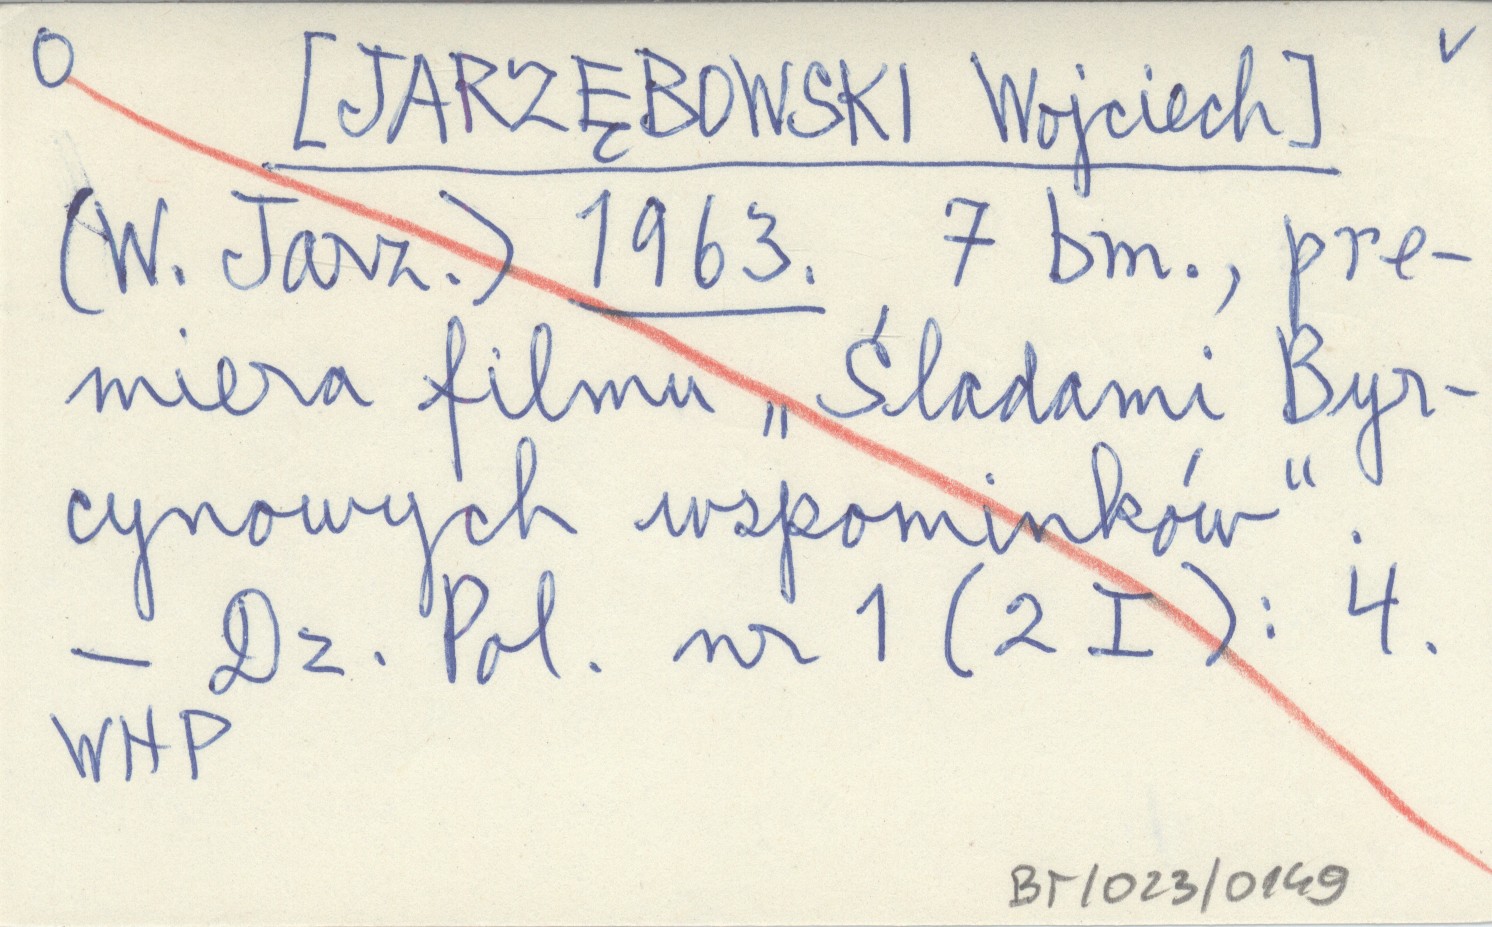 O [JARZĘBOWSKI Wojciech] v
(W. Jarz.) 1963. 7 bm., pre-
miera filmu „Śladami Byr-
cynowych wspominków".
– Dz. Pol. nr 1 (2 I): 4.
WHP
BT/023/0149